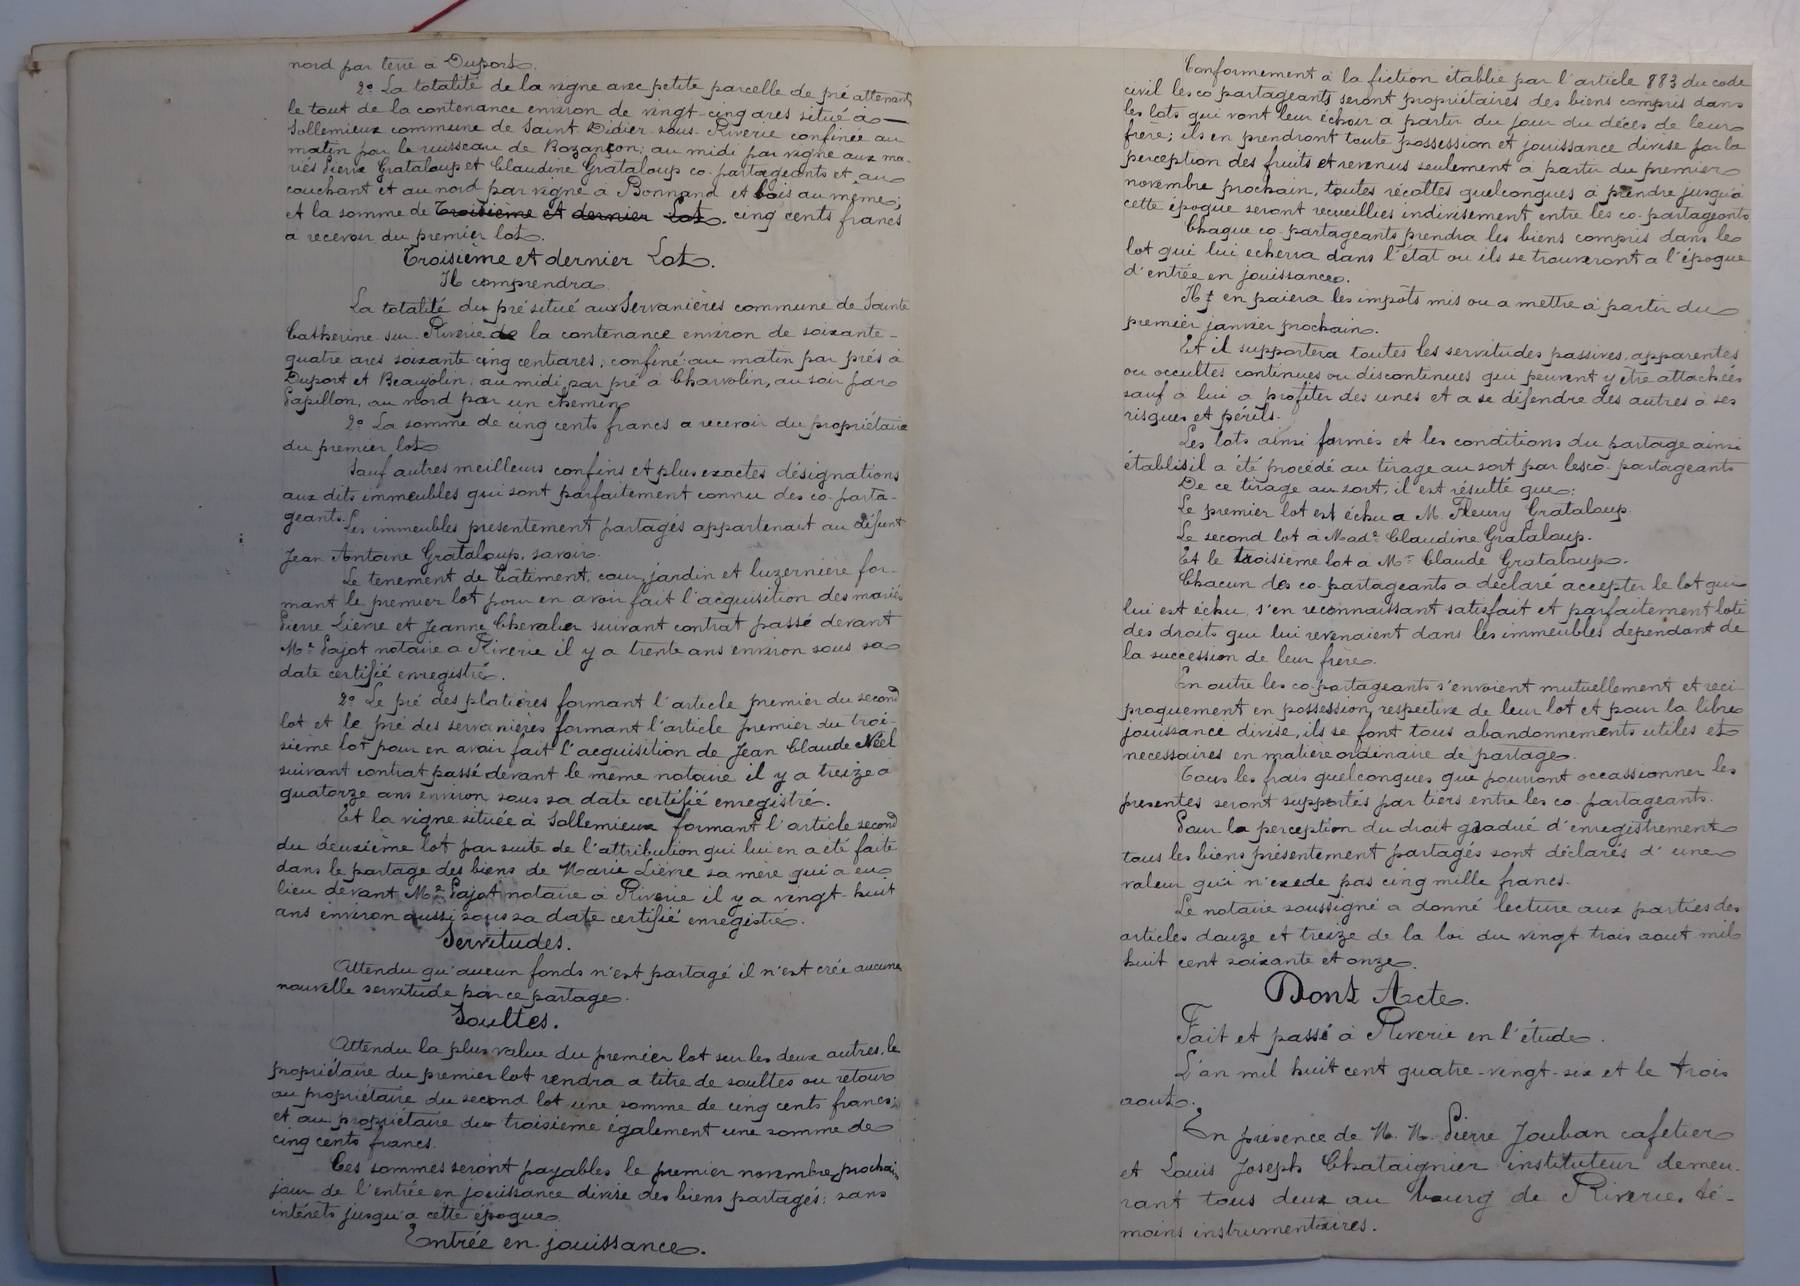 nord par terre à Duport.
2º La totalité de la vigne avec petite parcelle de pré attenant
le tout de la contenance environ de vingt-cinq ares situé à
Sollemieux commune de Saint Didier-sous-Riverie confinée au
matin par le ruisseau de Bozançon; au midi par vigne aux ma-
riés Pierre Grataloup et Claudine Grataloup co-partageants et au
couchant et au nord par vigne à Bonnand et bois au même;
et la somme de Troisième et dernier Lot. cinq cents francs
à recevoir du premier lot.
Troisième et dernier Lot.
Il comprendra
La totalité du pré situé aux Servanières commune de Sainte
Catherine-sur-Riverie de la contenance environ de soixante-
quatre ares soixante cinq centiares; confiné: au matin par prés à
Duport et Beaujolin; au midi par pré à Charvolin, au soir par
Papillon, au nord par un chemin
2º La somme de cinq cents francs a recevoir du propriétaire
du premier lot
Sauf autres meilleurs confins et plus exactes désignations
aux dits immeubles qui sont parfaitement connu des co-parta-
geants.
Les immeubles presentement partagés appartenait au défunt
Jean Antoine Grataloup, savoir.
Le tenement de bâtiment, cour, jardin et luzernière for-
mant le premier lot pour en avoir fait l'acquisition des mariés
Pierre Lierre et Jeanne Chevalier suivant contrat passé devant
Mᵉ Pajot notaire a Riverie il y a trente ans environ sous sa
date certifié enregistré.
2º Le pré des platières formant l'article premier du second
lot et le pré des servanières formant l'article premier du troi-
sième lot pour en avoir fait l'acquisition de Jean Claude Néel
suivant contrat passé devant le même notaire il y a treize à
quatorze ans environ sous sa date certifié enregistré.
Et la vigne située à Sollemieux formant l'article second
du deuxième lot par suite de l'attribution qui lui en a été faite
dans le partage des biens de Marie Lierre sa mère qui a eu
lieu devant Mᵉ Pajot notaire à Riverie il y a vingt-huit
ans environ aussi sous sa date certifié enregistré.
Servitudes.
Attendu qu'aucun fonds n'est partagé il n'est crée aucune
nouvelle servitude par ce partage.
Soultes.
Attendu la plus value du premier lot sur les deux autres, le
propriétaire du premier lot rendra a titre de soultes ou retour
au propriétaire du second lot une somme de cinq cents francs;
et au propriétaire du troisième également une somme de
cinq cents francs.
Ces sommes seront payables le premier novembre prochain
jour de l'entrée en jouissance divise des biens partagés; sans
intérêts jusqu'a cette époque
Entrée en jouissance.
Conformement à la fiction établie par l'article 883 du code
civil les co-partageants seront propriétaires des biens compris dans
les lots qui vont leur échoir a partir du jour du décès de leur
frère; ils en prendront toute possession et jouissance divise par la
perception des fruits et revenus seulement a partir du premier
novembre prochain, toutes récoltes quelconques à prendre jusqu'à
cette époque seront recueillies indivisement entre les co-partageants
Chaque co-partageants prendra les biens compris dans le
lot qui lui echerra dans l'état ou ils se trouveront a l'époque
d'entrée en jouissance.
Il en paiera les impôts mis ou a mettre à partir du
premier janvier prochain.
Et il supportera toutes les servitudes passives, apparentes
ou occultes continues ou discontinues qui peuvent y être attachées
sauf a lui a profiter des unes et a se défendre des autres à ses
risques et périls.
Les lots ainsi formés et les conditions du partage ainsi
établis il a été procédé au tirage au sort par les co-partageants
De ce tirage au sort, il est résulté que:
Le premier lot est échu a M. Fleury Grataloup.
Le second lot a Madᵉ Claudine Grataloup.
Et le troisième lot a Mʳ Claude Grataloup.
Chacun des co-partageants a déclaré accepter le lot qui
lui est échu, s'en reconnaissant satisfait et parfaitement loti
des droits qui lui revenaient dans les immeubles dependant de
la succession de leur frère.
En outre les co-partageants s'envoient mutuellement et reci-
proquement en possession respective de leur lot et pour la libre
jouissance divise, ils se font tous abandonnements utiles et
necessaires en matière ordinaire de partage.
Tous les frais quelconques que pourront occassionner les
presentes seront supportés par tiers entre les co-partageants.
Pour la perception du droit gradué d'enregistrement
tous les biens présentement partagés sont déclarés d'une
valeur qui n'exede pas cinq mille francs.
Le notaire soussigné a donné lecture aux parties des
articles douze et treize de la loi du vingt-trois aout mil
huit cent soixante et onze.
Dont Acte.
Fait et passé à Riverie en l'étude.
L'an mil huit cent quatre-vingt-six et le trois
aout.
En présence de M. M. Pierre Jouban cafetier
et Louis Joseph Chataignier instituteur demeu-
rant tous deux au bourg de Riverie, té-
moins instrumentaires.